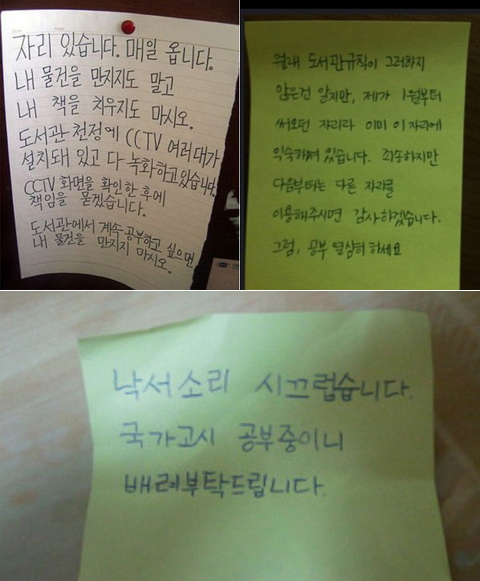 자리 있습니다. 매일 옵니다.
내 물건을 만지지도 말고
내 책을 치우지도 마시오.
도서관 천정에 CCTV 여러대가
설치돼 있고 다 녹화하고 있습니다.
CCTV 화면을 확인한 후에
책임을 묻겠습니다.
도서관에서 계속 공부하고 싶으면
내 물건을 만지지 마시오.
원래 도서관규칙이 그러하지
않은건 알지만, 제가 1월부터
써오던 자리라 이미 이 자리에
익숙해져 있습니다. 죄송하지만
다음부터는 다른 자리를
이용해주시면 감사하겠습니다.
그럼, 공부 열심히 하세요
낙서소리 시끄럽습니다.
국가고시 공부중이니
배려부탁드립니다.